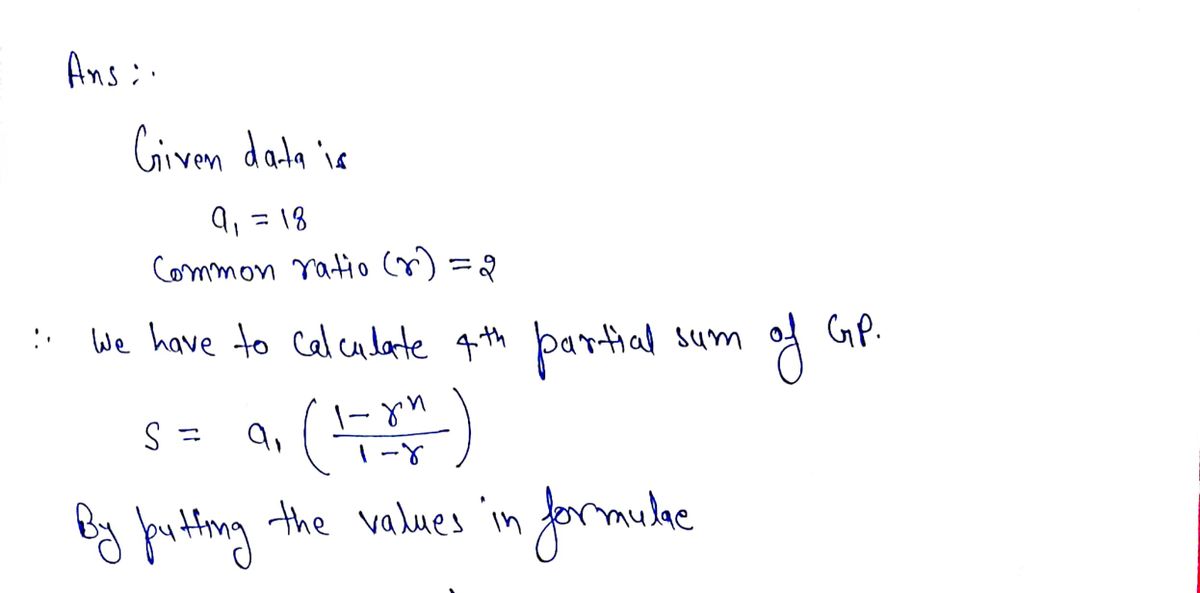 Ans :.
Given data is
a₁ = 18
Common ratio (r) = 2
∴ We have to calculate 4th partial sum of GP.
S = a₁ ( (1 - rⁿ) / (1 - r) )
By putting the values in formulae